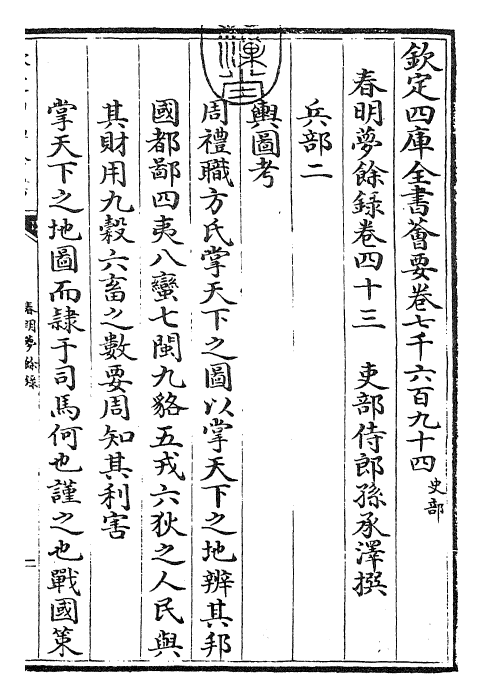 欽定四庫全書薈要卷七千六百九十四 史部
春明夢餘録卷四十三 吏部侍郎孫承澤撰
兵部二
輿圖考
周禮職方氏掌天下之圖以掌天下之地辨其邦
國都鄙四夷八蠻七閩九貉五戎六狄之人民與
其財用九穀六畜之數要周知其利害
掌天下之地圖而隷于司馬何也謹之也戰國策
春明夢餘録